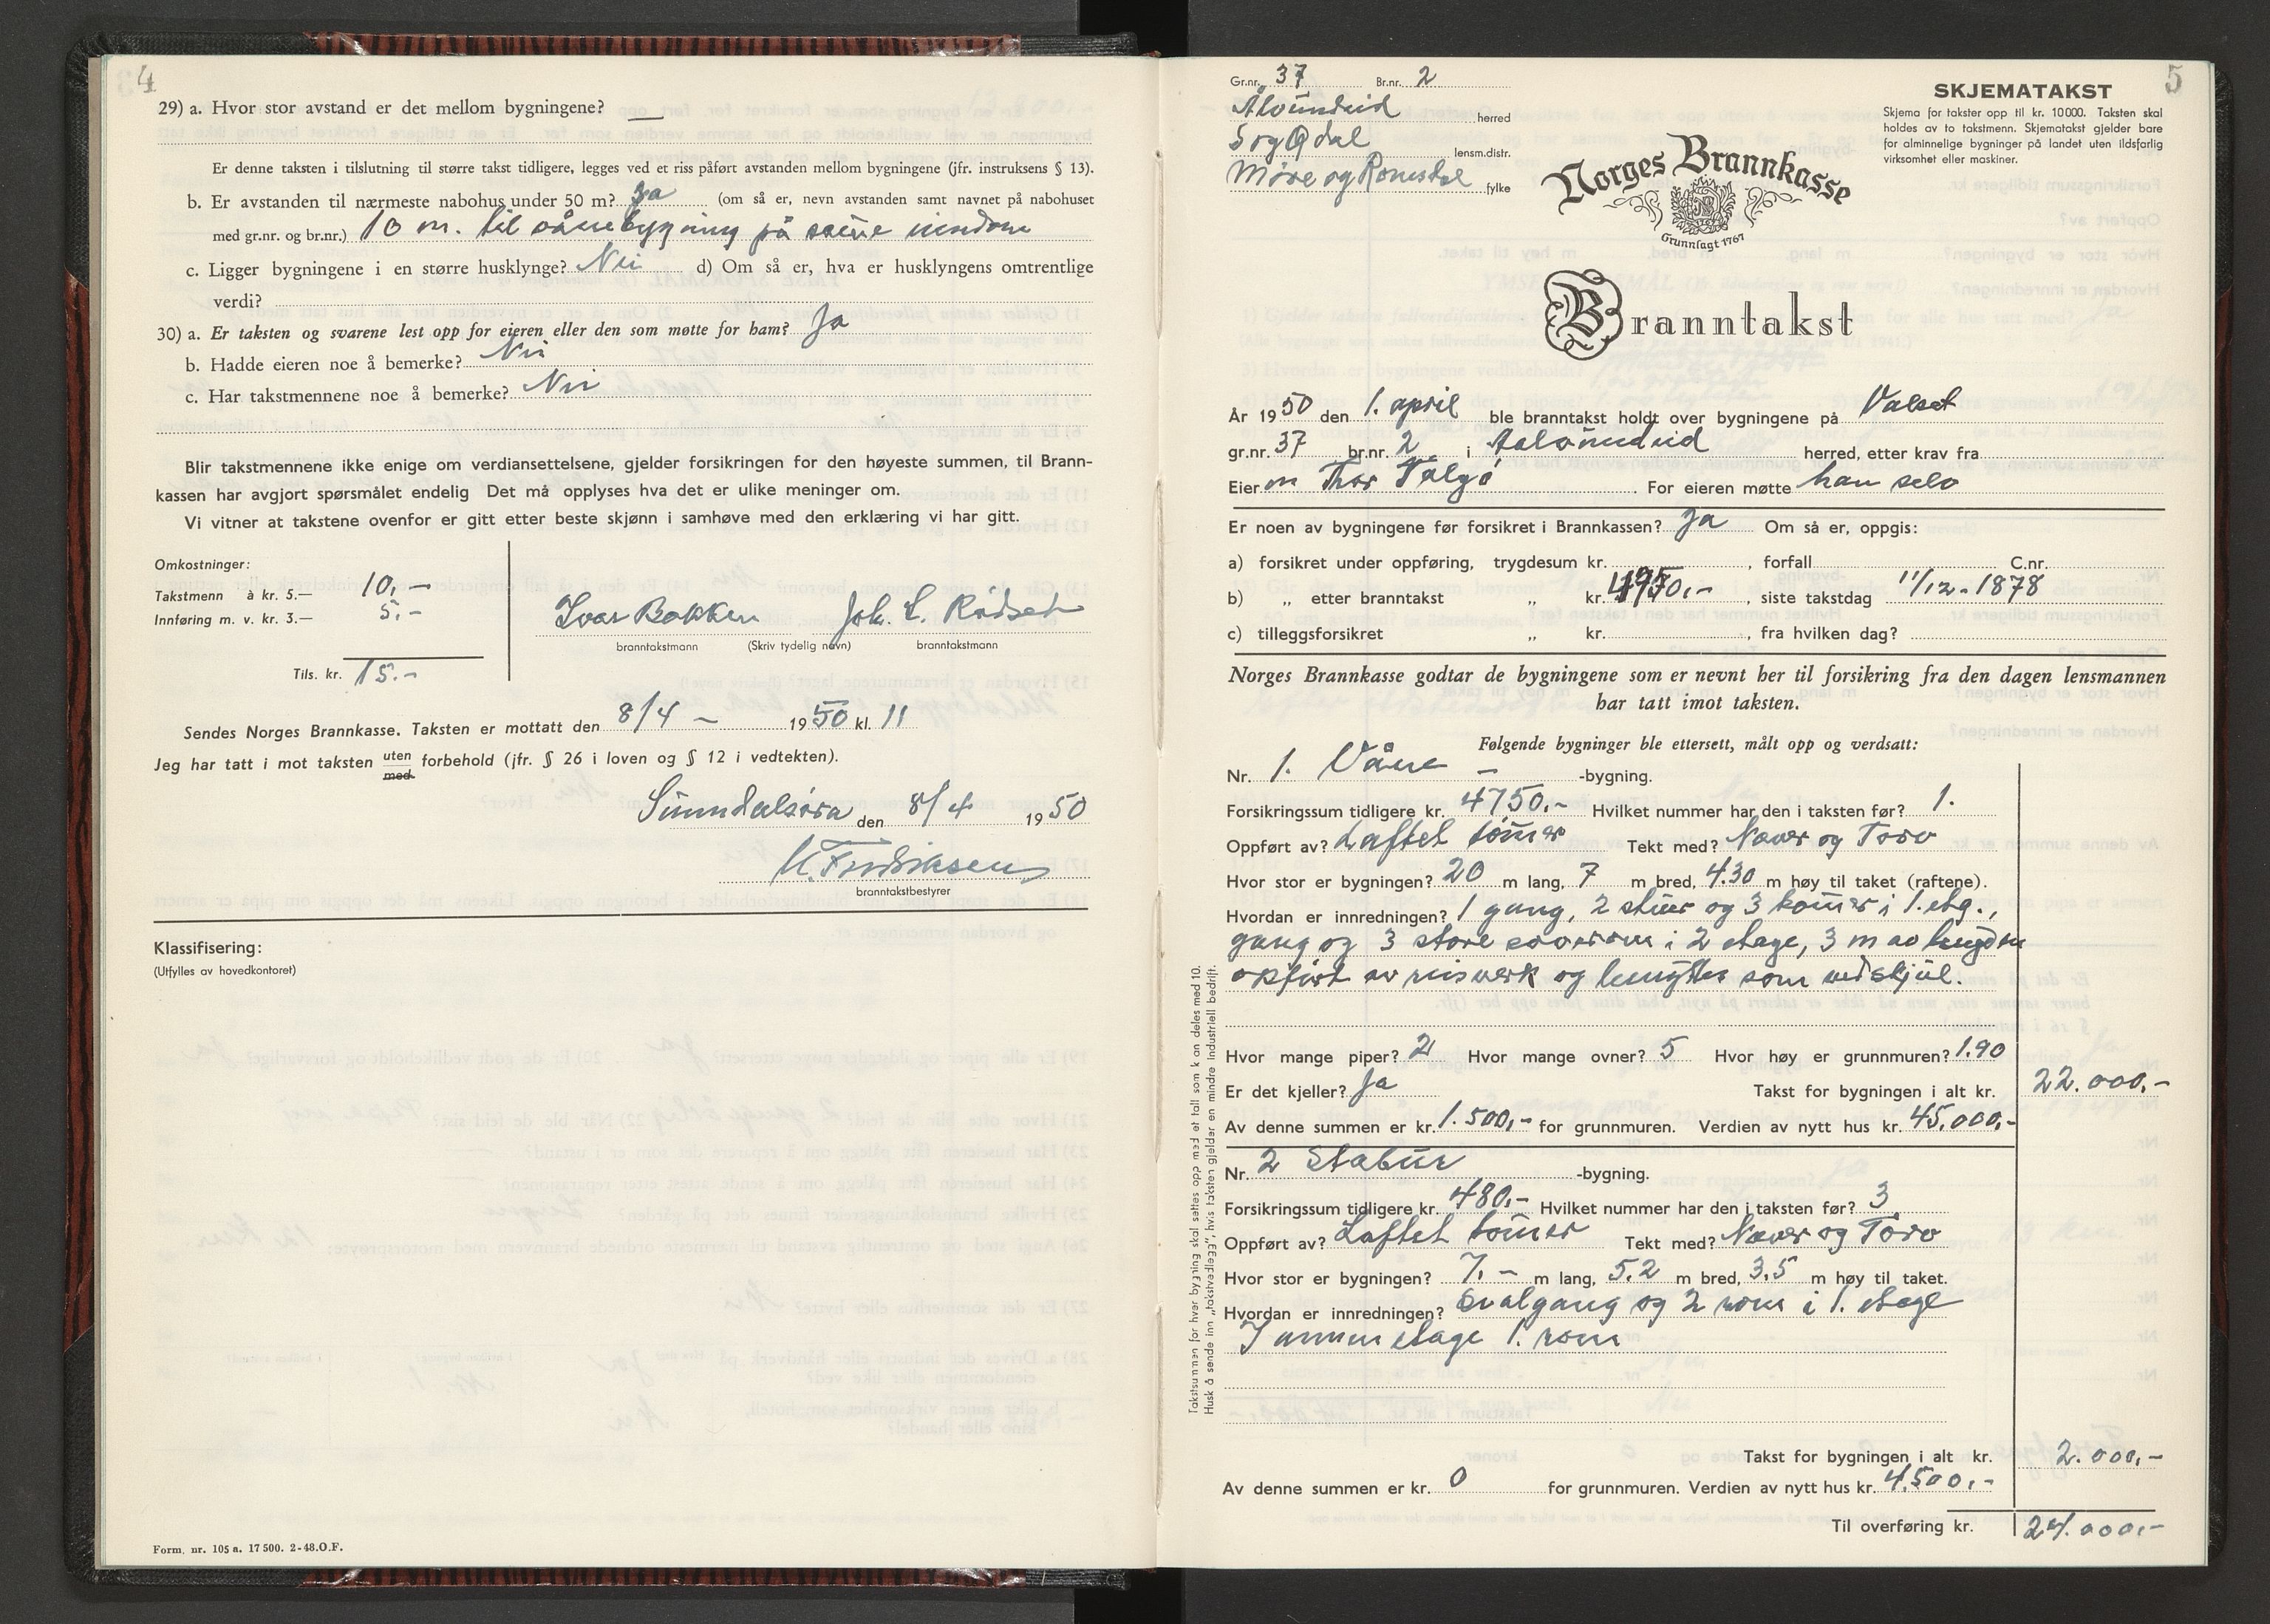 4
29) a. Hvor stor avstand er det mellom bygningene? —
Er denne taksten i tilslutning til større takst tidligere, legges ved et riss påført avstanden mellom bygningene (jfr. instruksens § 13).
b. Er avstanden til nærmeste nabohus under 50 m? Ja (om så er, nevn avstanden samt navnet på nabohuset
med gr.nr. og br.nr.) 10 m. til vånebygning på
c. Ligger bygningene i en større husklynge? Nei d) Om så er, hva er husklyngens omtrentlige
verdi?
30) a. Er taksten og svarene lest opp for eieren eller den som møtte for ham? Ja
b. Hadde eieren noe å bemerke? Nei
c. Har takstmennene noe å bemerke? Nei
Blir takstmennene ikke enige om verdiansettelsene, gjelder forsikringen for den høyeste summen, til Brann-
kassen har avgjort spørsmålet endelig Det må opplyses hva det er ulike meninger om.
Vi vitner at takstene ovenfor er gitt etter beste skjønn i samhøve med den erklæring vi har gitt.
Omkostninger:
Takstmenn à kr. 5.— 10,-
Innføring m. v. kr. 3.— 5,-
Tils. kr. 15.-
Ivar Bakken Joh. L. Rådset
branntakstmann (Skriv tydelig navn) branntakstmann
Sendes Norges Brannkasse. Taksten er mottatt den 8/4 - 1950 kl. 11
Jeg har tatt i mot taksten uten med forbehold (jfr. § 26 i loven og § 12 i vedtekten).
Sunndalsøra den 8/4 1950
M. Fredriksen
branntakstbestyrer
Klassifisering:
(Utfylles av hovedkontoret)
Form. nr. 105 a. 17 500. 2-48.O.F.
5
Gr.nr. 37 Br.nr. 2
Ålvundeid herred
S og Ø dal lensm.distr.
Møre og Romsdal fylke
SKJEMATAKST
Skjema for takster opp til kr. 10000. Taksten skal
holdes av to takstmenn. Skjematakst gjelder bare
for alminnelige bygninger på landet uten ildsfarlig
virksomhet eller maskiner.
Norges Brannkasse
Grunnlagt 1767
Branntakst
År 1950 den 1. april ble branntakst holdt over bygningene på Valset
gr.nr. 37 br.nr. 2 i Aalvundeid herred, etter krav fra
Eieren Thor Valsø For eieren møtte han selv
Er noen av bygningene før forsikret i Brannkassen? Ja Om så er, oppgis:
a) forsikret under oppføring, trygdesum kr. , forfall C.nr.
b) „ etter branntakst „ kr. , siste takstdag 11/12-1878
c) tilleggsforsikret „ kr. , fra hvilken dag?
Norges Brannkasse godtar de bygningene som er nevnt her til forsikring fra den dagen lensmannen
har tatt imot taksten.
Følgende bygninger ble ettersett, målt opp og verdsatt:
Nr. 1. Våne - -bygning.
Forsikringssum tidligere kr. 4750.- Hvilket nummer har den i taksten før? 1.
Oppført av? Laftet tømer Tekt med? Never og Torv
Hvor stor er bygningen? 20 m lang, 7 m bred, 4.30 m høy til taket (raftene).
Hvordan er innredningen? 1 gang, 2 stuer og 3 komer i 1. etg.,
gang og 3 store soverom i 2 etage, 3 m av lengden
opført av reisverk og benyttes som vedskjul.
Hvor mange piper? 2 Hvor mange ovner? 5 Hvor høy er grunnmuren? 1.90
Er det kjeller? Ja Takst for bygningen i alt kr. 22.000,-
Av denne summen er kr. 1.500,- for grunnmuren. Verdien av nytt hus kr. 45.000,-
Nr. 2 Stabur -bygning.
Forsikringssum tidligere kr. 480,- Hvilket nummer har den i taksten før? 3
Oppført av? Laftet tømer Tekt med? Never og Torv
Hvor stor er bygningen? 7.- m lang, 5.2 m bred, 3.5 m høy til taket.
Hvordan er innredningen? Svalgang og 2 rom i 1. etage
I annen etage 1. rom
Takst for bygningen i alt kr. 2.000,-
Av denne summen er kr. 0 for grunnmuren. Verdien av nytt hus kr. 4.500,-
Til overføring kr. 24.000,-
Takstsummen for hver bygning skal settes opp med et tall som kan deles med 10.
Husk å sende inn „takstvedlegg", hvis taksten gjelder en mindre industriell bedrift.